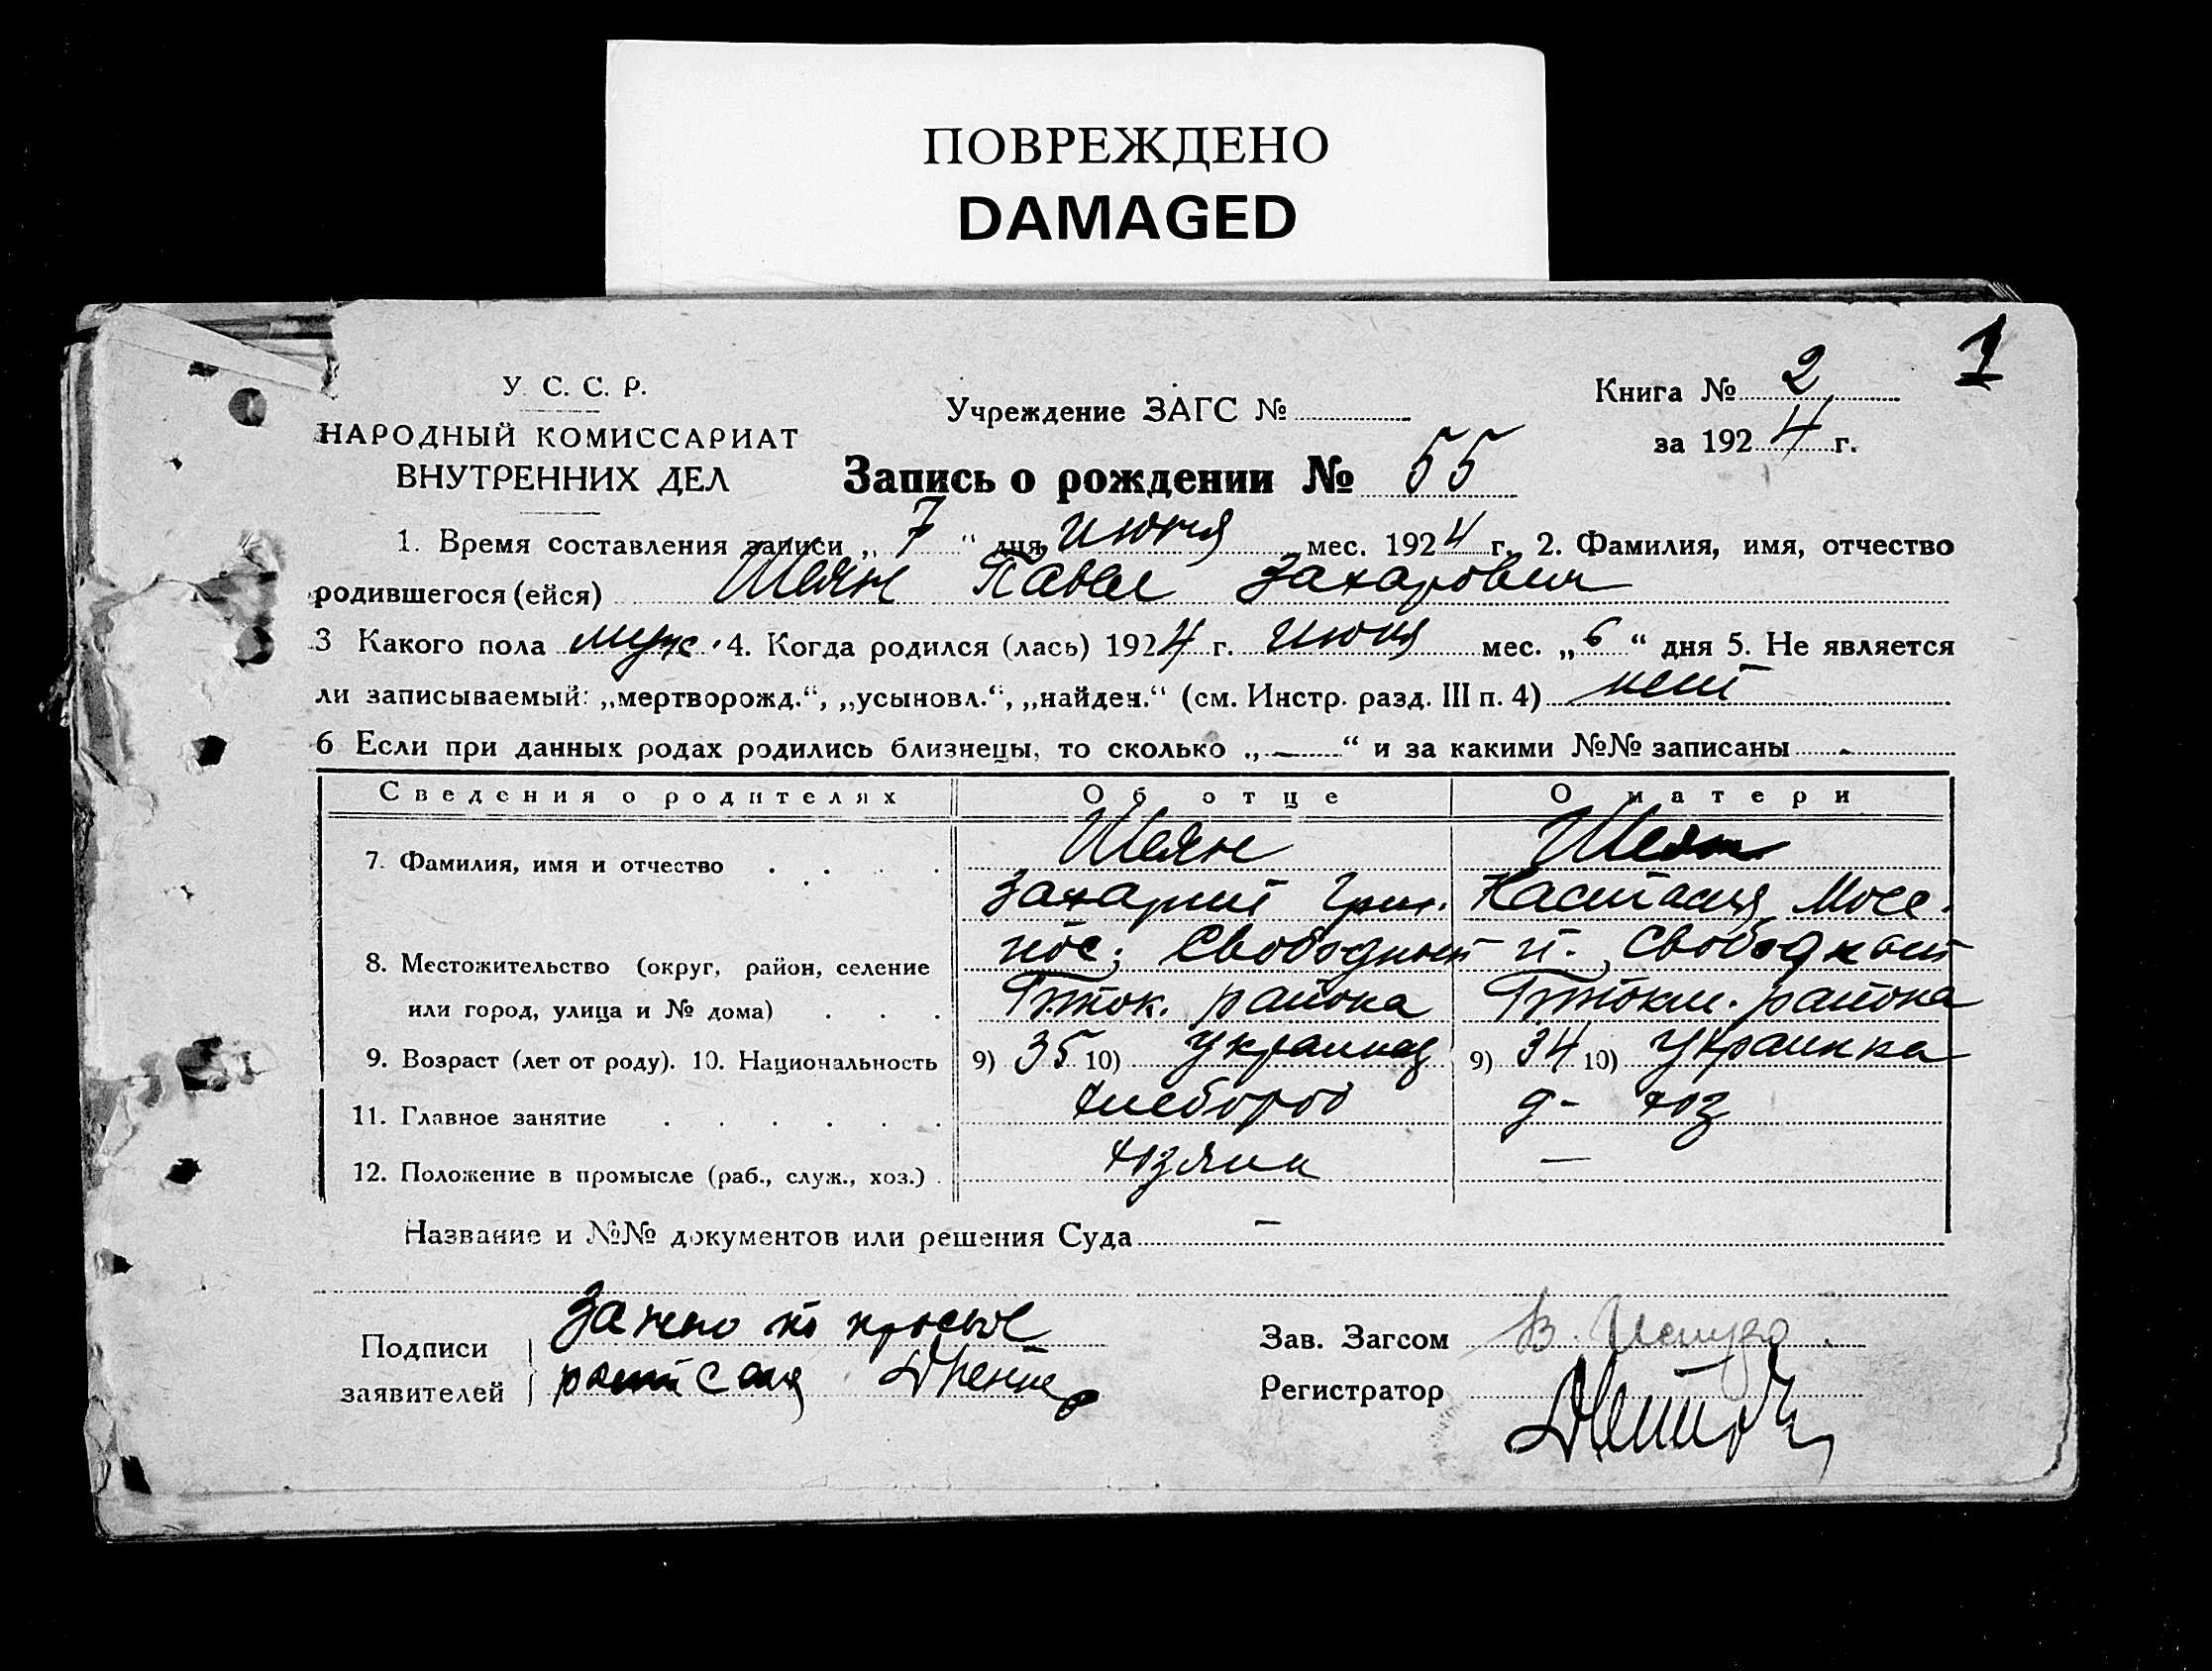 ПОВРЕЖДЕНО
DAMAGED
1
У. С. С. Р.
НАРОДНЫЙ КОМИССАРИАТ
ВНУТРЕННИХ ДЕЛ
Учреждение ЗАГС №
Книга № 2
за 1924 г.
Запись о рождении № 55
1. Время составления записи „ 7 “ дня июня мес. 1924 г. 2. Фамилия, имя, отчество
родившегося (ейся) Шеян Павел Захарович
3 Какого пола муж. 4. Когда родился (лась) 1924 г. июня мес. „ 6 “ дня 5. Не является
ли записываемый: „мертворожд.“, „усыновл.“, „найден.“ (см. Инстр. разд. III п. 4) нет
6 Если при данных родах родились близнецы, то сколько „ — “ и за какими №№ записаны -
Сведения о родителях Об отце О матери
7. Фамилия, имя и отчество Шеян Шеян
Захарий Григ. Настасия Мосе.
8. Местожительство (округ, район, селение пос; Свободный п. Свободный
или город, улица и № дома) района района
9. Возраст (лет от роду). 10. Национальность 9) 35 10) Украинец 9) 34 10) Украинка
11. Главное занятие хлебороб д- хоз
12. Положение в промысле (раб., служ., хоз.) хозяин —
Название и №№ документов или решения Суда —
Подписи
заявителей
За него по просьбе
Зав. Загсом В.
Регистратор